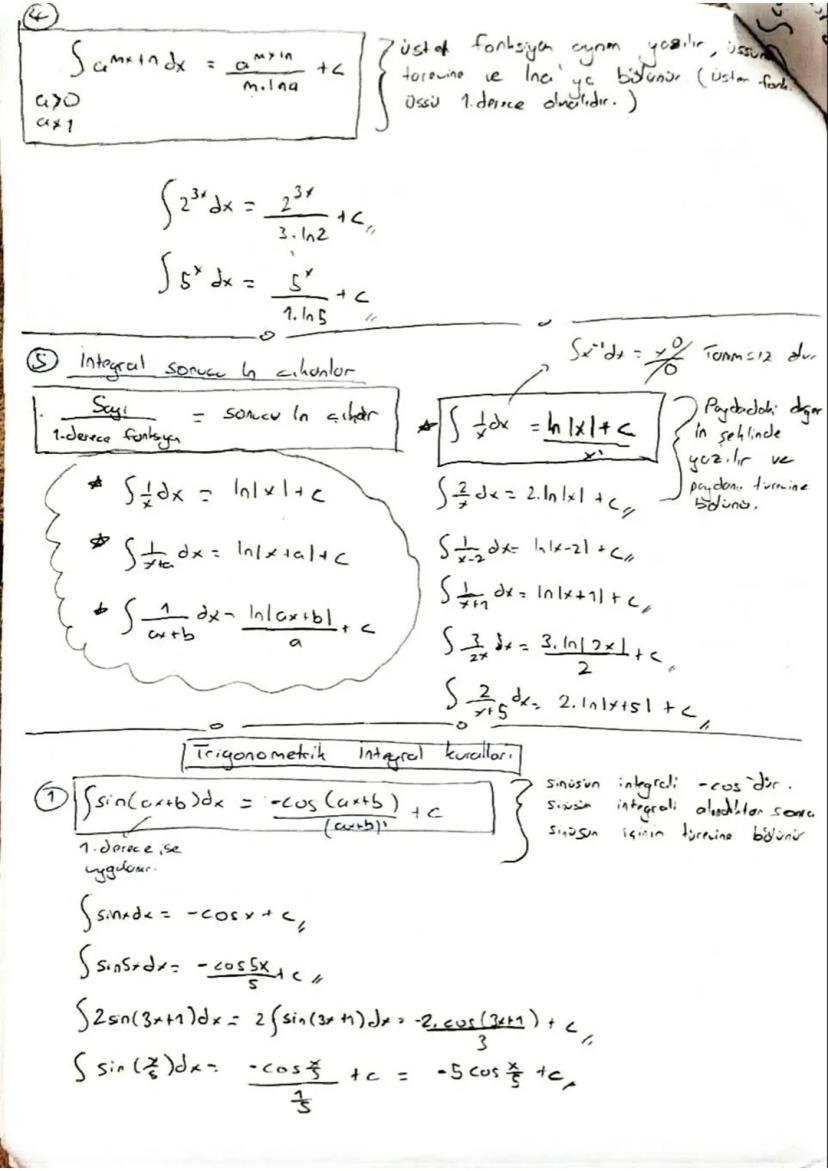 4
∫ a^(mx+n) dx = a^(mx+n) / (m.lna) + c
a>0
a≠1
Üstel fonksiyon aynen yazılır, üssün
türevine ve lna'ya bölünür (Üstel fonk.
üssü 1.derece olmalıdır.)
∫ 2^(3x) dx = 2^(3x) / (3.ln2) + c//
∫ 5^x dx = 5^x / (1.ln5) + c //
5 İntegral sonucu ln çıkanlar
∫x^(-1) dx = x^0/0 Tanımsız dır
Sayı / 1.derece fonksiyon = sonucu ln çıkar
* ∫ 1/x dx = ln|x|+c / x'
Paydadaki değer
ln şeklinde
yazılır ve
paydanın türevine
bölünür.
* ∫ 1/x dx = ln|x|+c
* ∫ 1/(x+a) dx = ln|x+a|+c
* ∫ 1/(ax+b) dx = ln|ax+b| / a + c
∫ 2/x dx = 2.ln|x| + c//
∫ 1/(x-2) dx = ln|x-2| + c//
∫ 1/(x+1) dx = ln|x+1| + c//
∫ 3/(2x) dx = 3.ln|2x| / 2 + c//
∫ 2/(x+5) dx = 2.ln|x+5| + c//
Trigonometrik integral kuralları
1 ∫ sin(ax+b)dx = -cos(ax+b) / (ax+b)' + c
1.derece ise
uygulanır.
sinüsün integrali -cos'dür.
Sinüsün integrali alındıktan sonra
sinüsün içinin türevine bölünür
∫ sinxdx = -cosx + c//
∫ sin5xdx = -cos5x / 5 + c //
∫ 2sin(3x+1)dx = 2∫sin(3x+1)dx = -2.cos(3x+1) / 3 + c//
∫ sin(x/5)dx = -cos x/5 / (1/5) + c = -5cos x/5 + c//